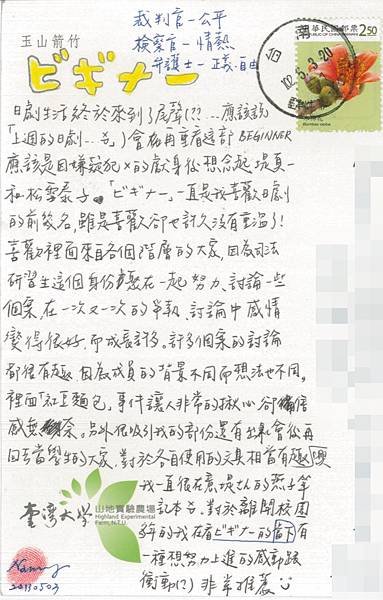 裁判官—公平
檢察官—情熱
弁護士—正義·自由
玉山箭竹
ビギナー
中華民國郵票
REPUBLIC OF CHINA
250
台南
102.5.3.20
日劇生活終於來到了尾聲(??...應該說
「上週的日劇...」)會想再重看這部 BEGINNER
應該是因嫌疑犯X的獻身後想念起堤真一
和松雪泰子。「ビギナー」一直是我喜歡日劇
的前幾名,雖是喜歡卻也許久沒有重溫了!
喜歡裡面來自各個階層的大家,因為司法
研習生這個身份聚在一起努力、討論一些
個案,在一次又一次的爭執、討論中感情
變得很好,而成長許多。許多個案的討論
都很有趣,因為成員的背景不同而想法也不同。
裡面 事件讓人非常的揪心卻備倍
感無奈。另外很吸引我的部份還有出來會後再
回去當學生的大家,對於各自使用的文具相當有趣
我一直很在意堤さん的燕子筆
記本。對於離開校園
多年的我在看ビギナー的當下有
一種想努力上進的感動跟
衝動(?) 非常推薦
臺灣大學
山地實驗農場
Highland Experimental
Farm, N.T.U.
Nancy
20130503